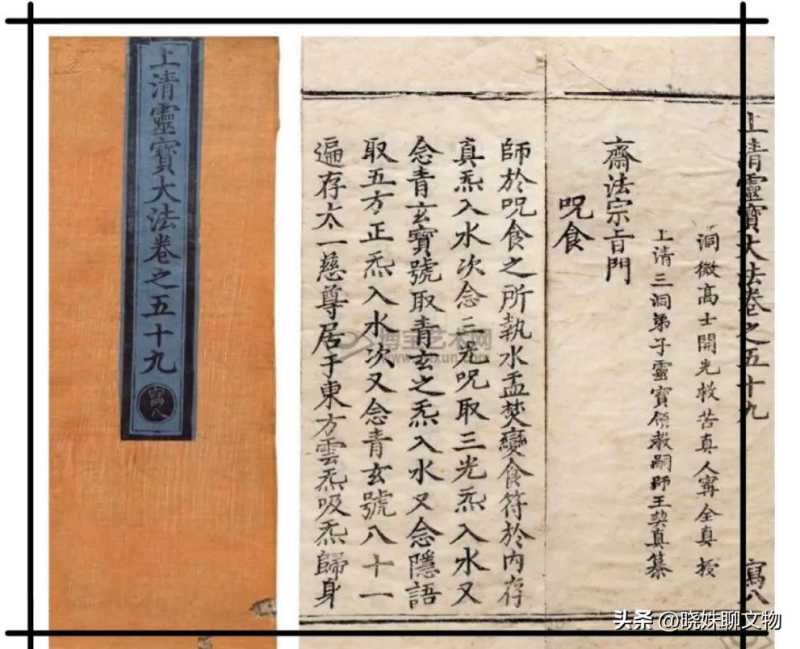 上清靈寶大法卷之五十九
寓八
上清靈寶大法卷之五十九 寓八
洞微高士開光救苦真人寗全真授
上清三洞弟子靈寶領教嗣師王契真纂
齋法宗旨門
呪食
師於呪食之所執水盂焚變食符於內存
真炁入水次念三光呪取三光炁入水又
念青玄寳號取青玄之炁入水又念隱語
取五方正炁入水次又念青玄號八十一
遍存太一慈尊居于東方雲炁吸炁歸身
头条 @晓姝聊文物